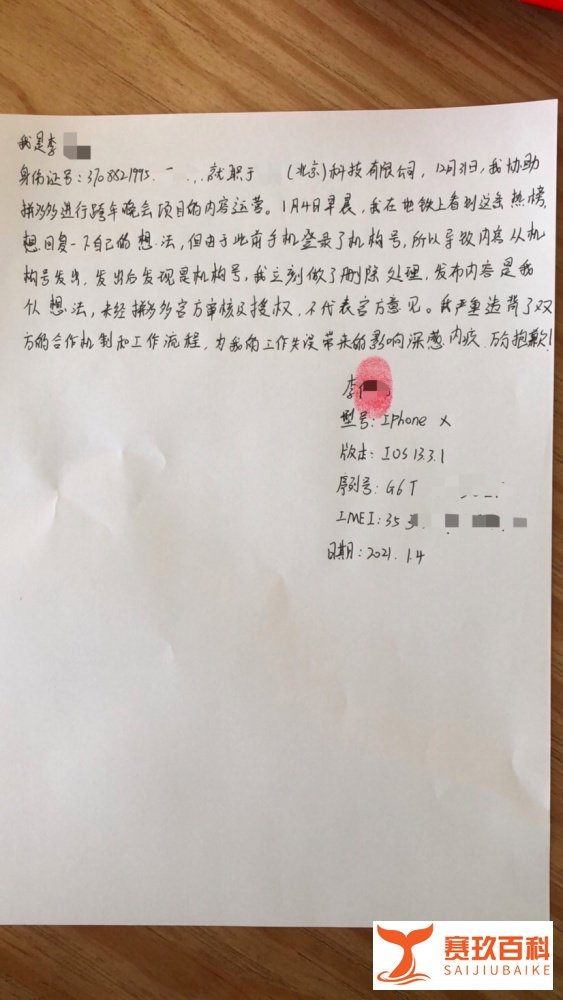 我是李
身份证号:3708821995. 就职于 (北京)科技有限公司,12月31日,我协助
拼多多进行跨年晚会项目的内容运营。1月4日早晨,我在地铁上看到这条热榜,
想回复一下自己的想法,但由于此前手机登录了机构号,所以导致内容从机
构号发出,发出后发现是机构号,我立刻做了删除处理,发布内容是我
个人想法,未经拼多多官方审核及授权,不代表官方意见。我严重违背了双
方的合作机制和工作流程,为我的工作失误带来的影响深感内疚,万分抱歉!
李
型号:Iphone X
版本:IOS 13.3.1
序列号:G6T
IMEI:35
日期:2021.1.4
赛玖百科
SAIJIUBAIKE